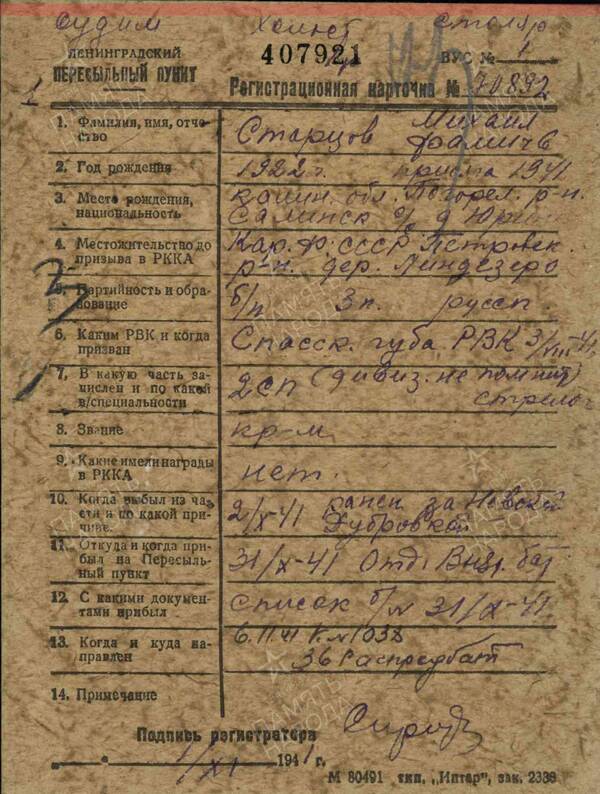 судим холост столяр
ЛЕНИНГРАДСКИЙ 407921 ВУС №
ПЕРЕСЫЛЬНЫЙ ПУНКТ Регистрационная карточка № 70892
1. Фамилия, имя, отчество Старцов Михаил
2. Год рождения 1922 г. призыв 1941
3. Место рождения, национальность Калин. обл. Погорел. р-н.
4. Местожительство до призыва в РККА Кар. Ф. СССР Петровск.
р-н. дер. Линдезеро
5. Партийность и образование б/п 3 п. русск.
6. Каким РВК и когда призван Спасск. губа. РВК 3/VIII-41
7. В какую часть зачислен и по какой в/специальности 2 СП (дивиз. не помнит)
8. Звание кр-м
9. Какие имели награды в РККА нет.
10. Когда выбыл из части и по какой причине 2/X-41 ранен за Невской
Дубровкой
11. Откуда и когда прибыл на Пересыльный пункт 31/X-41 Отд. Выз. бат
12. С какими документами прибыл список б/н 31/X-41
13. Когда и куда направлен 6.11.41 к. №1038
36 Распредбат
14. Примечание
Подпись регистратора
1/XI 1941 г.
М 80491 тип. „Интер", зак. 2389
ПАМЯТЬ НАРОДА